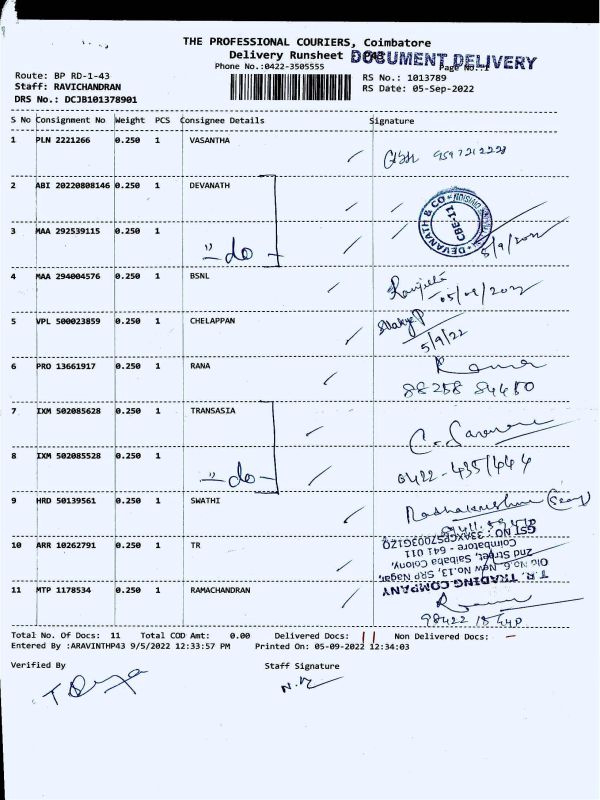 THE PROFESSIONAL COURIERS, Coimbatore
Delivery Runsheet P43
DOCUMENT DELIVERY
Phone No.:0422-3505555
Page No.:1
Route: BP RD-1-43
RS No.: 1013789
Staff: RAVICHANDRAN
RS Date: 05-Sep-2022
DRS No.: DCJB101378901
S No Consignment No Weight PCS Consignee Details Signature
1 PLN 2221266 0.250 1 VASANTHA
2 ABI 20220808146 0.250 1 DEVANATH
DEVANATH & CO
CBE-11
3 MAA 292539115 0.250 1 "do- 5/9/2022
4 MAA 294004576 0.250 1 BSNL
05/09/2022
5 VPL 500023859 0.250 1 CHELAPPAN
5/9/22
6 PRO 13661917 0.250 1 RANA
88258 84480
7 IXM 502085628 0.250 1 TRANSASIA
8 IXM 502085528 0.250 1 "do- 0422-435/444
9 HRD 50139561 0.250 1 SWATHI Radhakrishnan
10 ARR 10262791 0.250 1 TR
T.R. TRADING COMPANY
Old No.6, New No.13, SRP Nagar,
2nd Street, Saibaba Colony,
Coimbatore - 641 011
GST NO : 33AXCPS7003G1ZQ
11 MTP 1178534 0.250 1 RAMACHANDRAN
Total No. Of Docs: 11 Total COD Amt: 0.00 Delivered Docs: 11 Non Delivered Docs: -
Entered By :ARAVINTHP43 9/5/2022 12:33:57 PM Printed On: 05-09-2022 12:34:03
Verified By Staff Signature